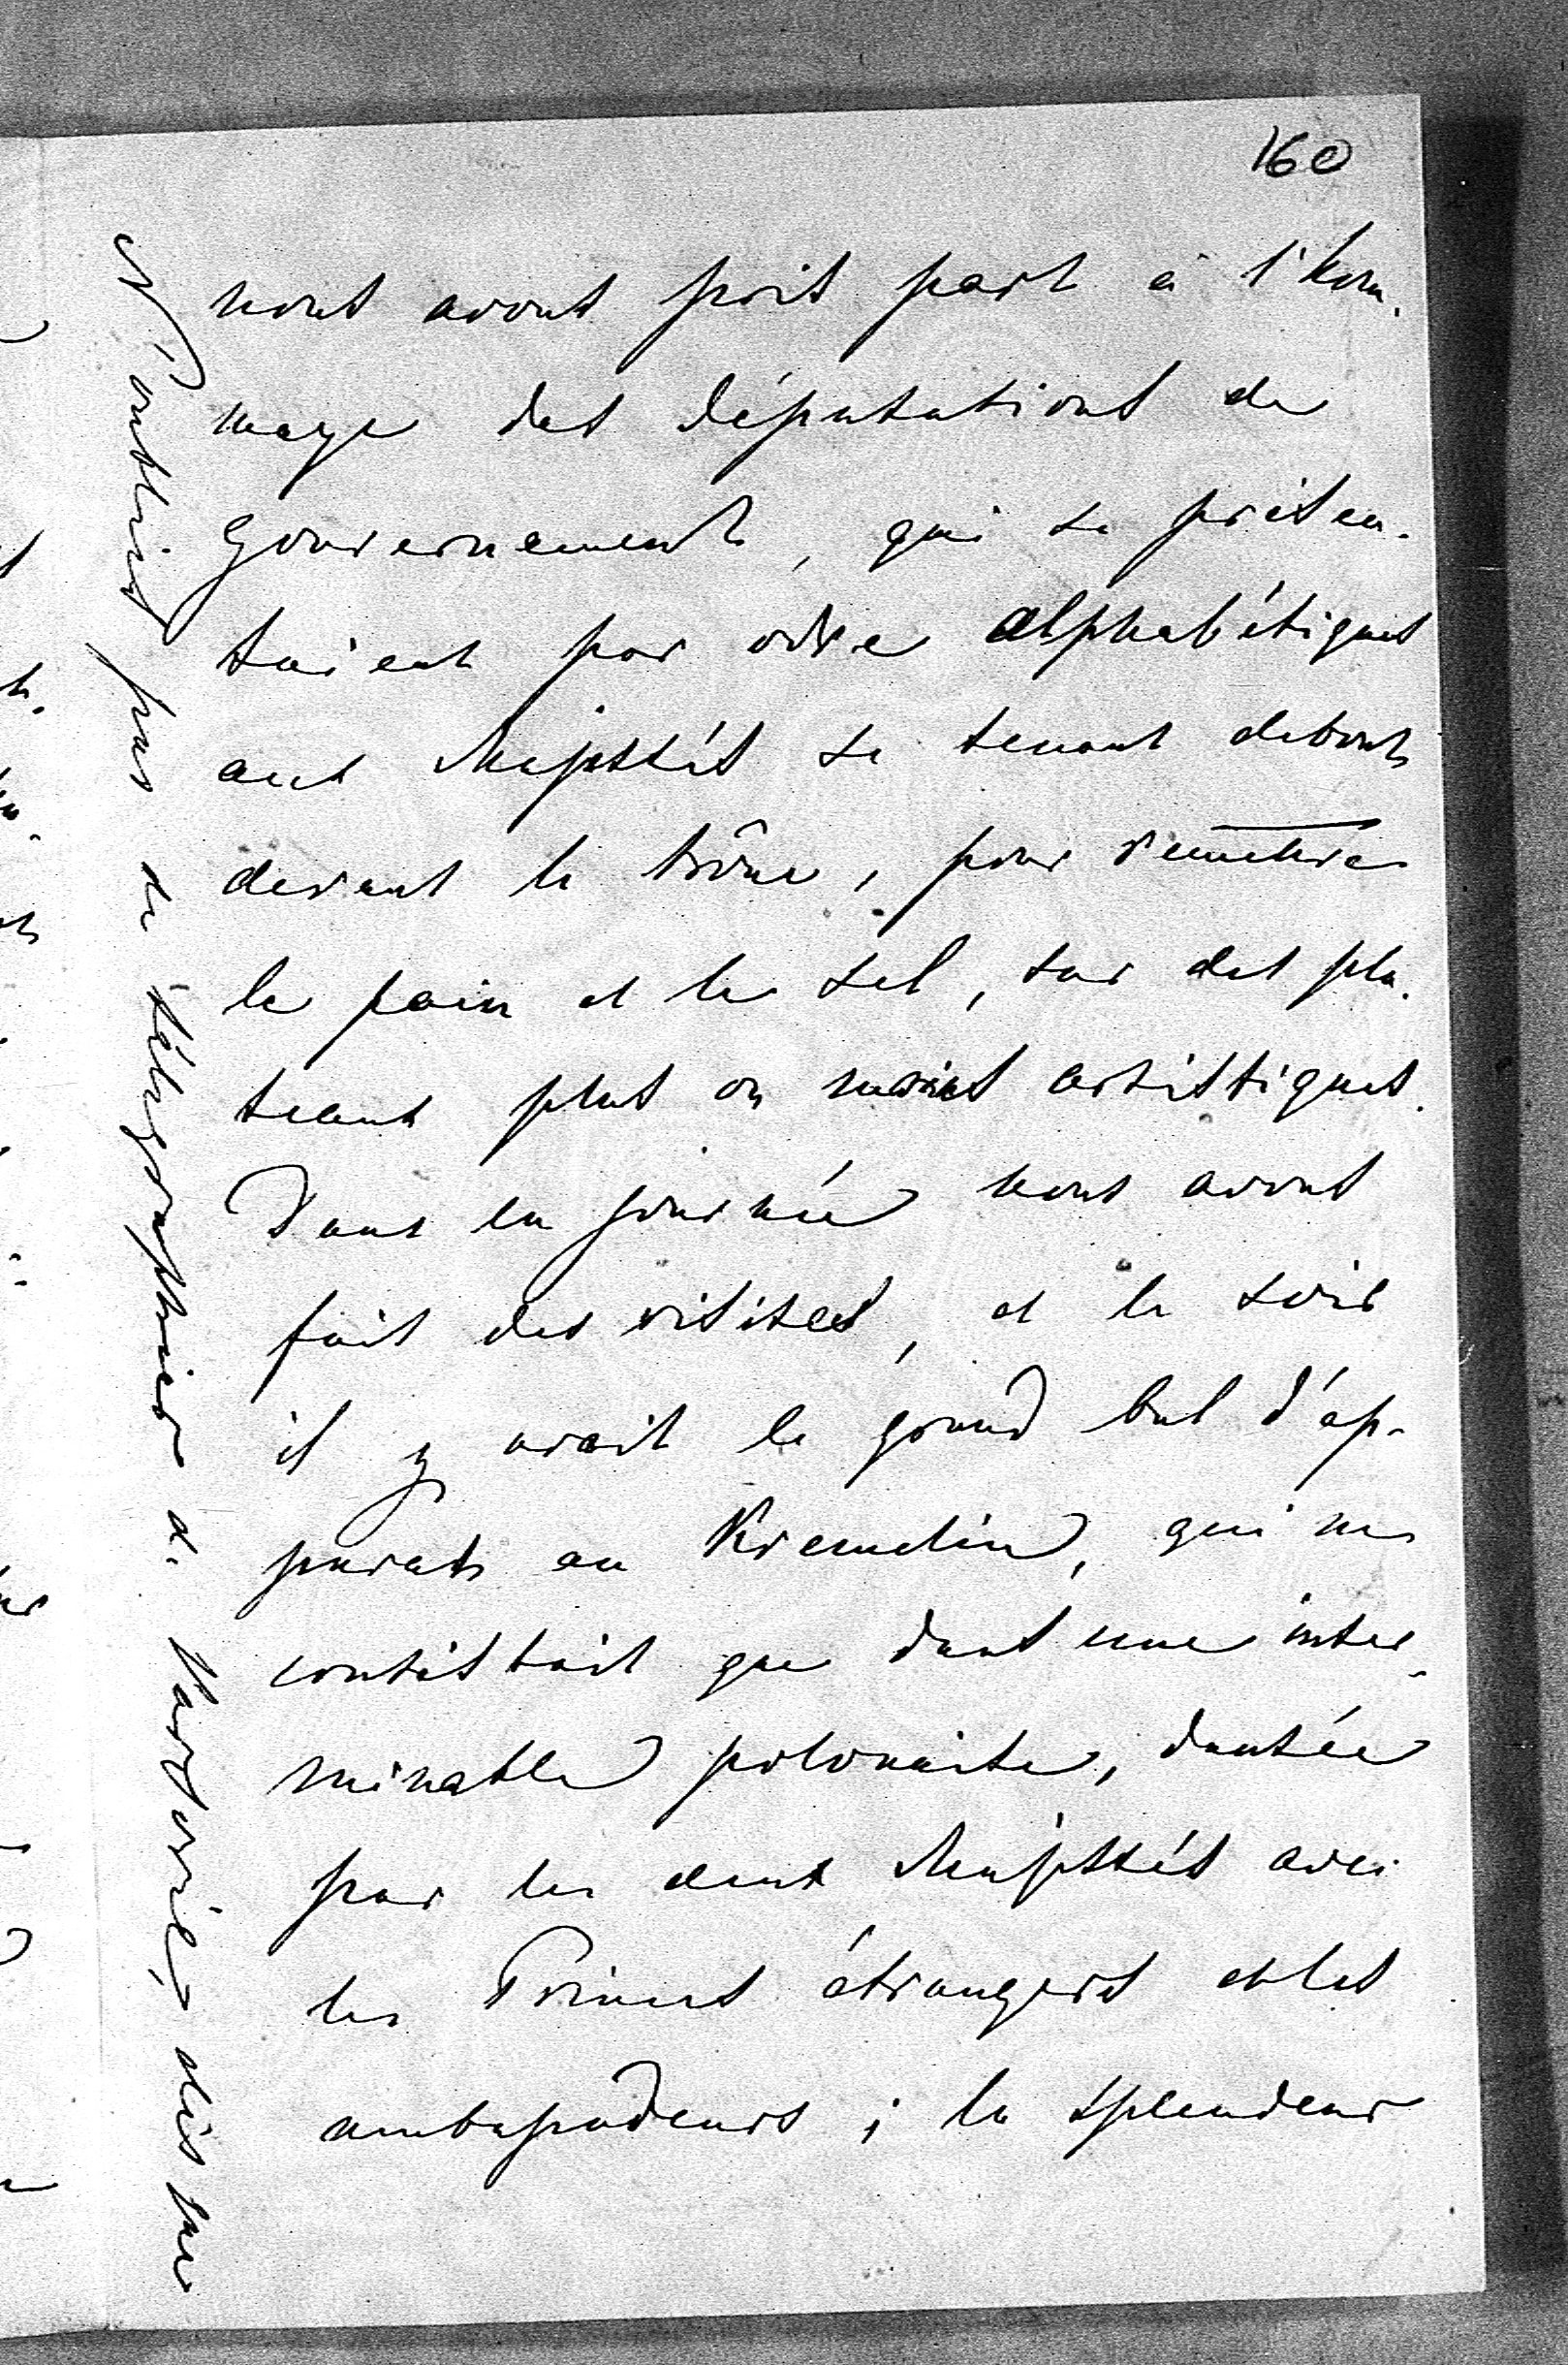 160
nous avons pris part à l'hom-
mage des députations de
gouvernements, qui se présen-
taient par odre alphabétiques
aux Majestés se tenant debout
devant le trône, pour remettre
le pain et le sel, sur des pla-
teaux plus ou moins artistiques.
Dans la journée nous avons
fait des visites, et le soir
il y avait le grand bal d'ap-
parats au Kremelin, qui ne
consistait que dans une inter-
minable polonaise, dansée
par les deux Majestés avec
les Princes étrangers et les
ambassadeurs ; la splendeur
N'oubliez pas de télégraphier à